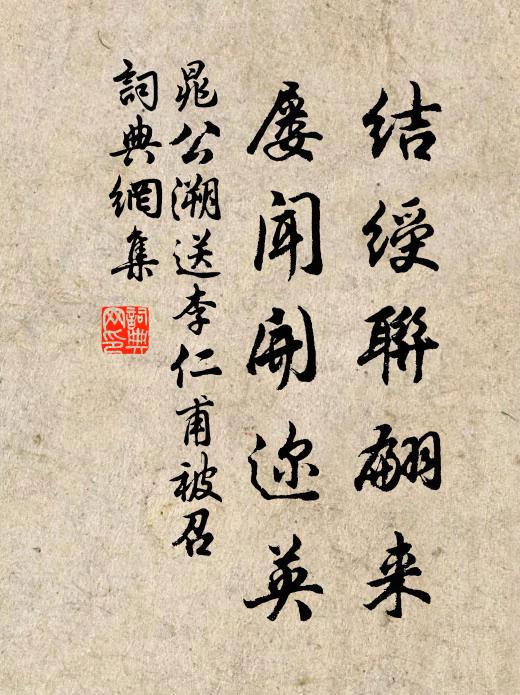 结绶聯翩来
屡聞開迩英
晁公溯送李仁甫被召
詞典網集
詞典網印